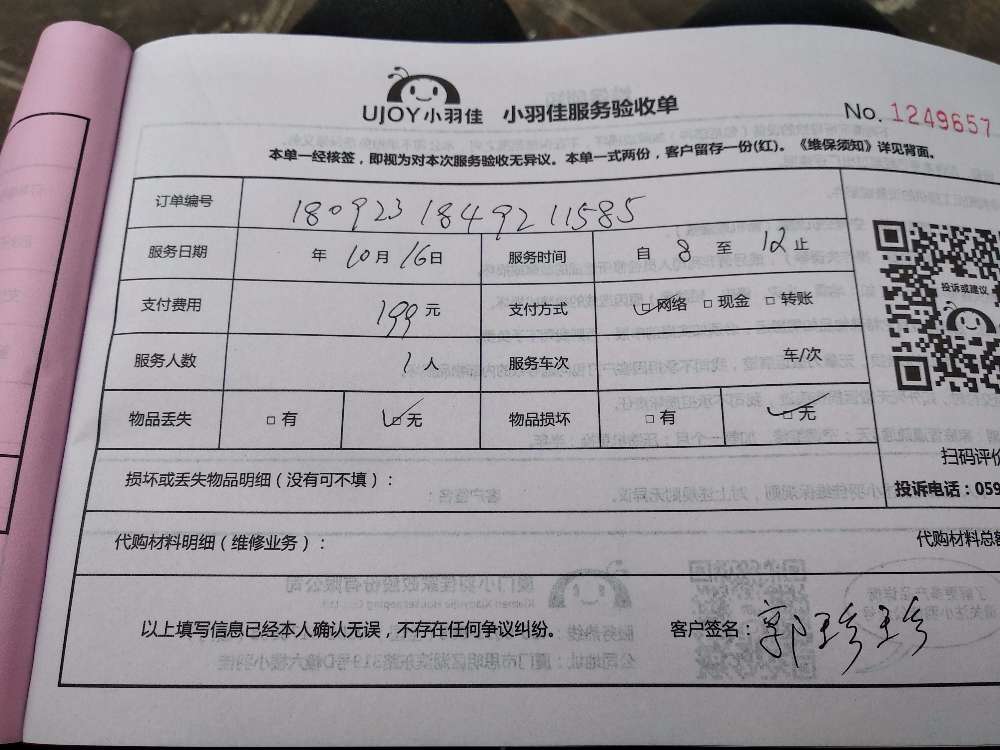 UJOY小羽佳 小羽佳服务验收单 No. 1249657
本单一经核签，即视为对本次服务验收无异议。本单一式两份，客户留存一份(红)。《维保须知》详见背面。
订单编号 1809231849211585
服务日期 年 10月 16日 服务时间 自 8 至 12 止
投诉或建议
支付费用 199 元 支付方式 □网络 □现金 □转账
服务人数 1 人 服务车次 车/次
物品丢失 □有 □无 物品损坏 □有 □无
扫码评价
损坏或丢失物品明细（没有可不填）：
投诉电话：059
代购材料明细（维修业务）： 代购材料总额
以上填写信息已经本人确认无误，不存在任何争议纠纷。 客户签名：郭珍珍